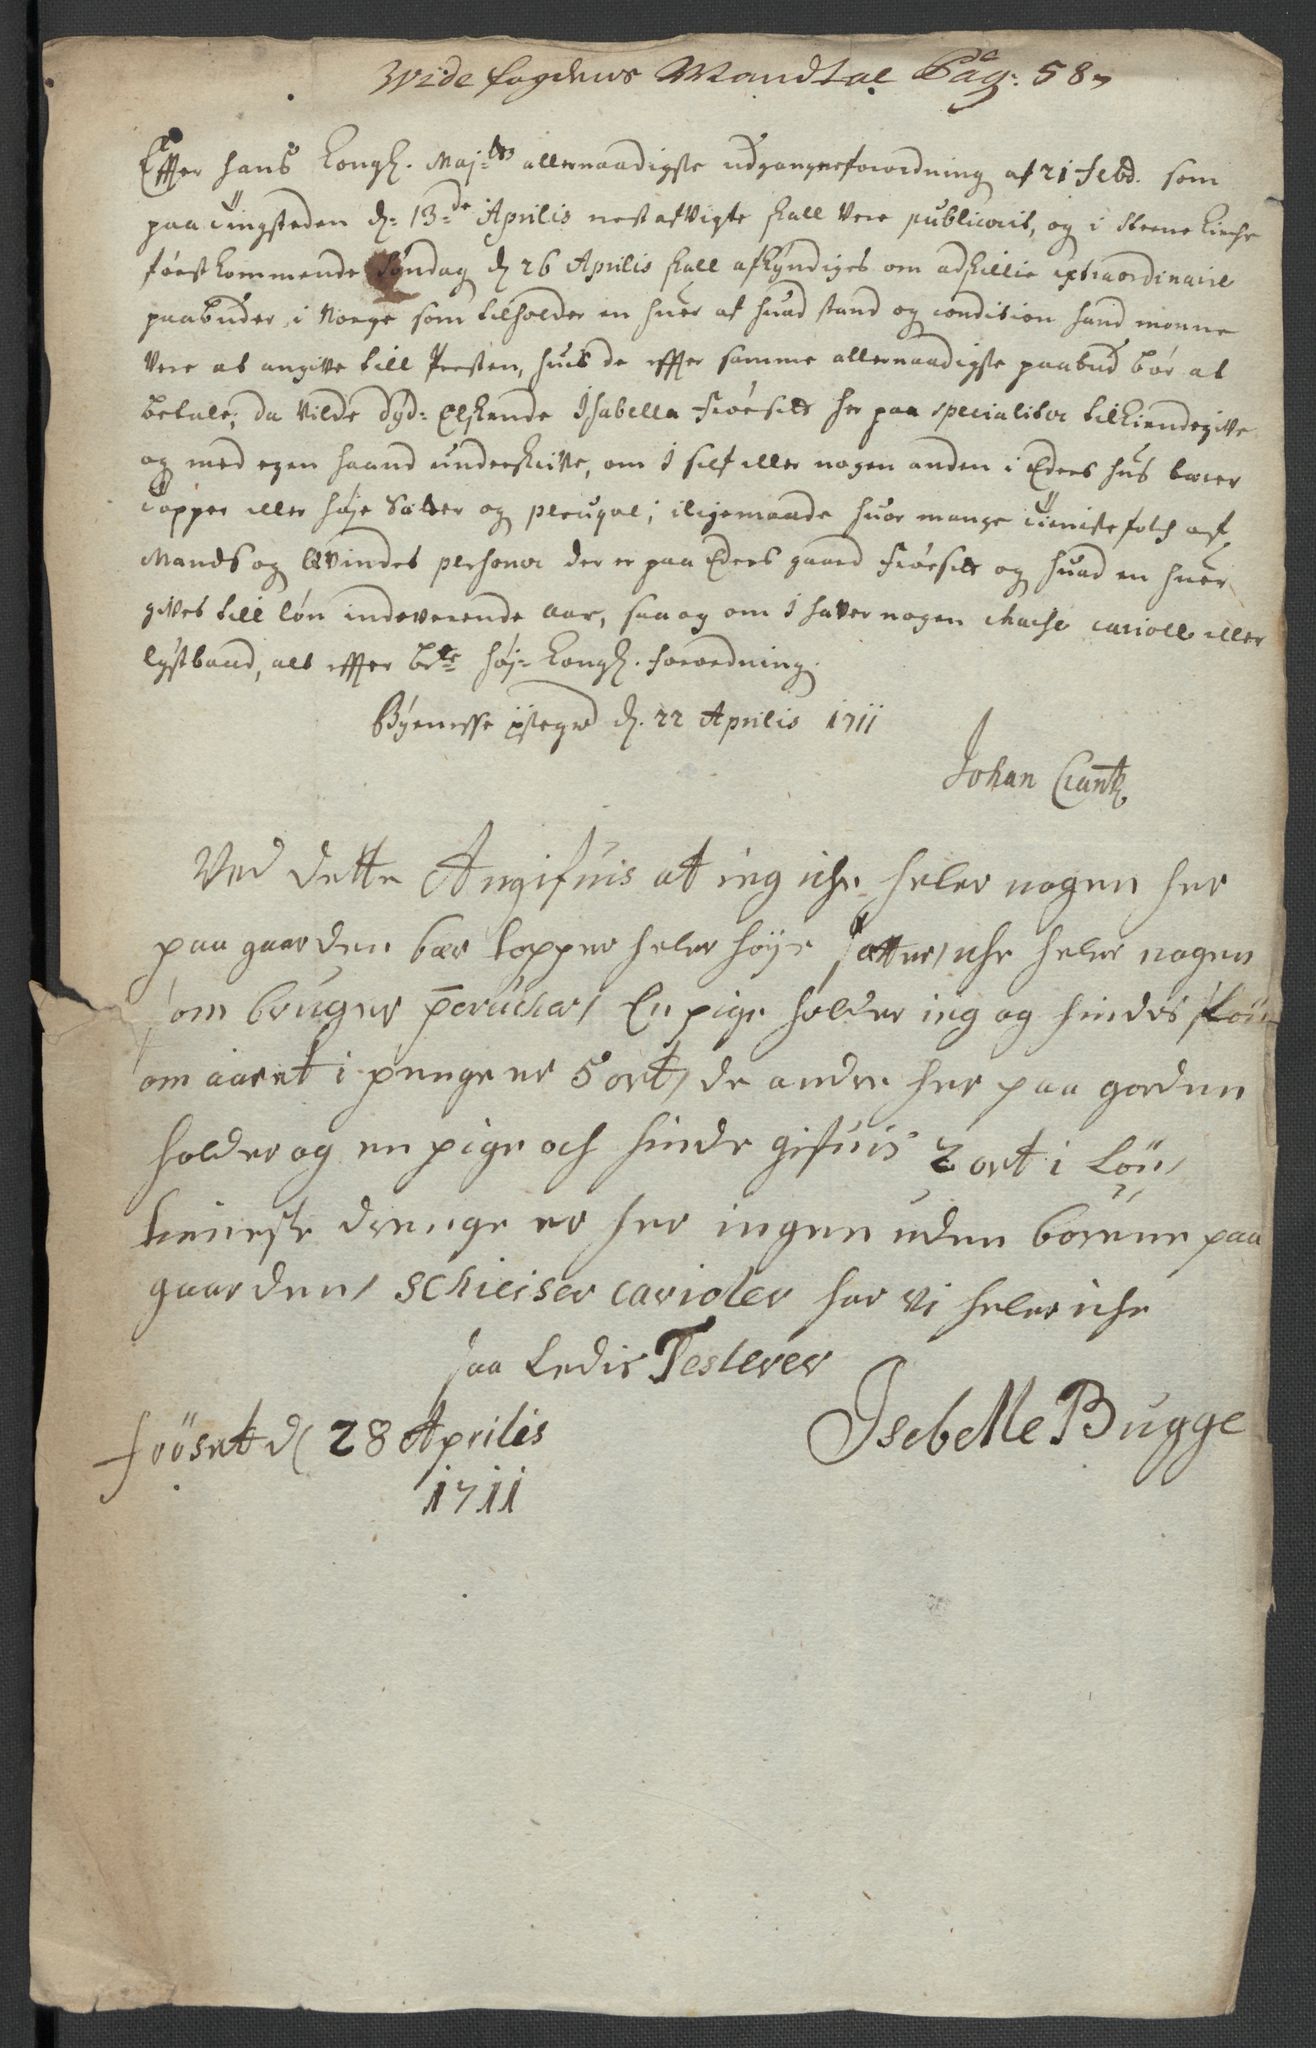 Wide fogdens Mandtal Pag: 58
Effter hans Kongl. Maj:ts allernaadigste udgangne forordning af 21 Febr. som
paa tingsteden d: 13de Aprilis nest afvigte skall vere publicerit, og i Steene kirche
førstkommende Søndag d. 26 Aprilis skall afkyndiges om adskillie extraordinaire
paabuder i Norge som tilholder en huer af huad stand og condition hand monne
vere at angive till Presten, huis de effter samme allernaadigste paabud bør at
betale; da vilde dyd: Elskende Isabella Frøeseth her paa specialiter tilkiendegive
og med egen haand underskrive, om I self eller nogen anden i Eders hus bærer
topper eller høje Sætter og pleuqve; iligemaade huor mange tieniste folch af
Mands og Qvindes personer der er paa Eders gaard Frøeseth og huad en huer
gives till løn indeverende aar, saa og om I haver nogen chaise cariole eller
lystbaad, alt effter bete høj- Kongl. forordning.
Bynesse pstegrd d. 22 Aprilis 1711
Johan Crantz
Ved dette Angifuis at ieg iche heler nogen her
paa gaarden bær topper heler høye sætter/ iche heler nogen
som bruger perucker/ En pige holder ieg og hindes løn
om aaret i penge er 5 ort/ de andre her paa gorden
holder og en pige och hinde gifuis 2 ort i Løn/
tieneste drenge er her ingen uden børene paa
gaarden/ schieiser carioler har vi heler iche
saa Ledis Testerer
Isebelle Bugge
frøset d 28 Aprilis
1711